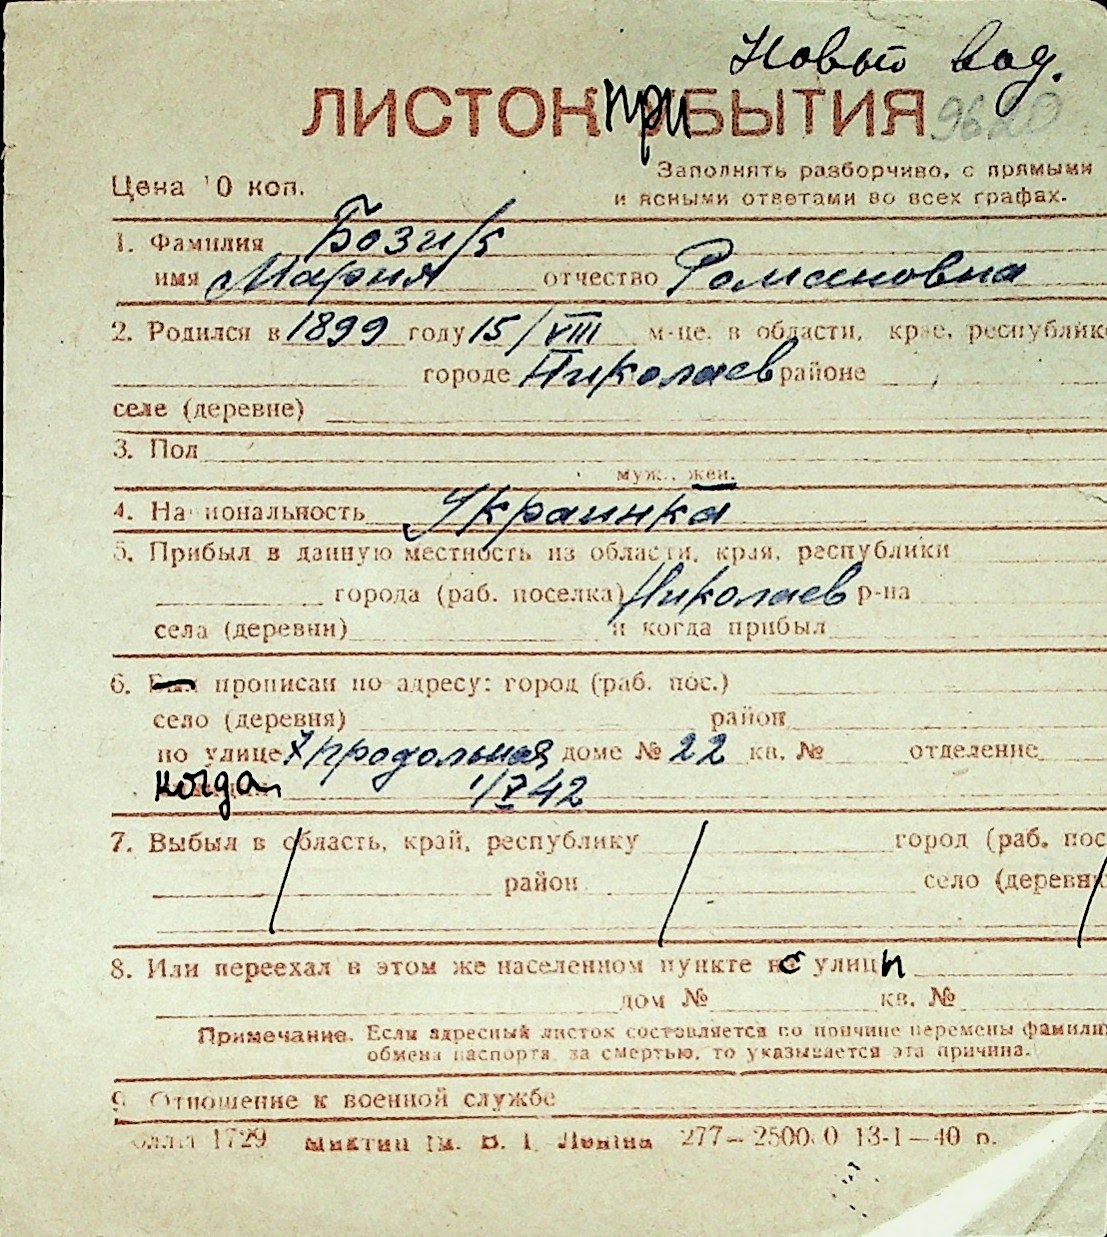 Новый вод.
ЛИСТОК ПРИБЫТИЯ 9620
Цена 10 коп.
Заполнять разборчиво, с прямыми
и ясными ответами во всех графах.
1. Фамилия Бозик
имя Мария отчество Романовна
2. Родился в 1899 году 15/VIII м-це. в области, крае, республике
городе Николаев районе
селе (деревне)
3. Пол
муж., жен.
4. Национальность Украинка
5. Прибыл в данную местность из области, края, республики
города (раб. поселка) Николаев р-на
села (деревни) и когда прибыл
6. Был прописан по адресу: город (раб. пос.)
село (деревня) район
по улице 7 продольная доме № 22 кв. № отделение
когда 1/X 42
7. Выбыл в область, край, республику город (раб. пос
район село (деревня
8. Или переехал в этом же населенном пункте с улицы
дом № кв. №
Примечание. Если адресный листок составляется по причине перемены фамилии
обмена паспорта, за смертью, то указывается эта причина.
9. Отношение к военной службе
1729 277—25000 13-I—40 р.